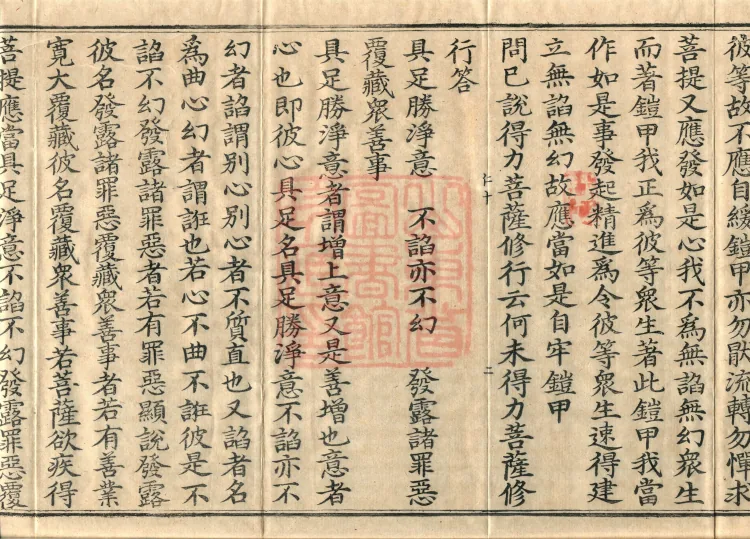 彼等故不應自緩鎧甲亦勿猒流轉勿憚求
菩提又應發如是心我不為無諂無幻衆生
而著鎧甲我正為彼等衆生著此鎧甲我當
作如是事發起精進為令彼等衆生速得建
立無諂無幻故應當如是自牢鎧甲
問已說得力菩薩修行云何未得力菩薩修
二
行答
具足勝淨意 不諂亦不幻 發露諸罪惡
覆藏衆善事
具足勝淨意者謂增上意又是善增也意者
心也即彼心具足名具足勝淨意不諂亦不
幻者諂謂別心別心者不質直也又諂者名
為曲心幻者謂誑也若心不曲不誑彼是不
諂不幻發露諸罪惡者若有罪惡顯說發露
彼名發露諸罪惡覆藏衆善事者若有善業
寬大覆藏彼名覆藏衆善事若菩薩欲疾得
菩提應當具足淨意不諂不幻發露罪惡覆